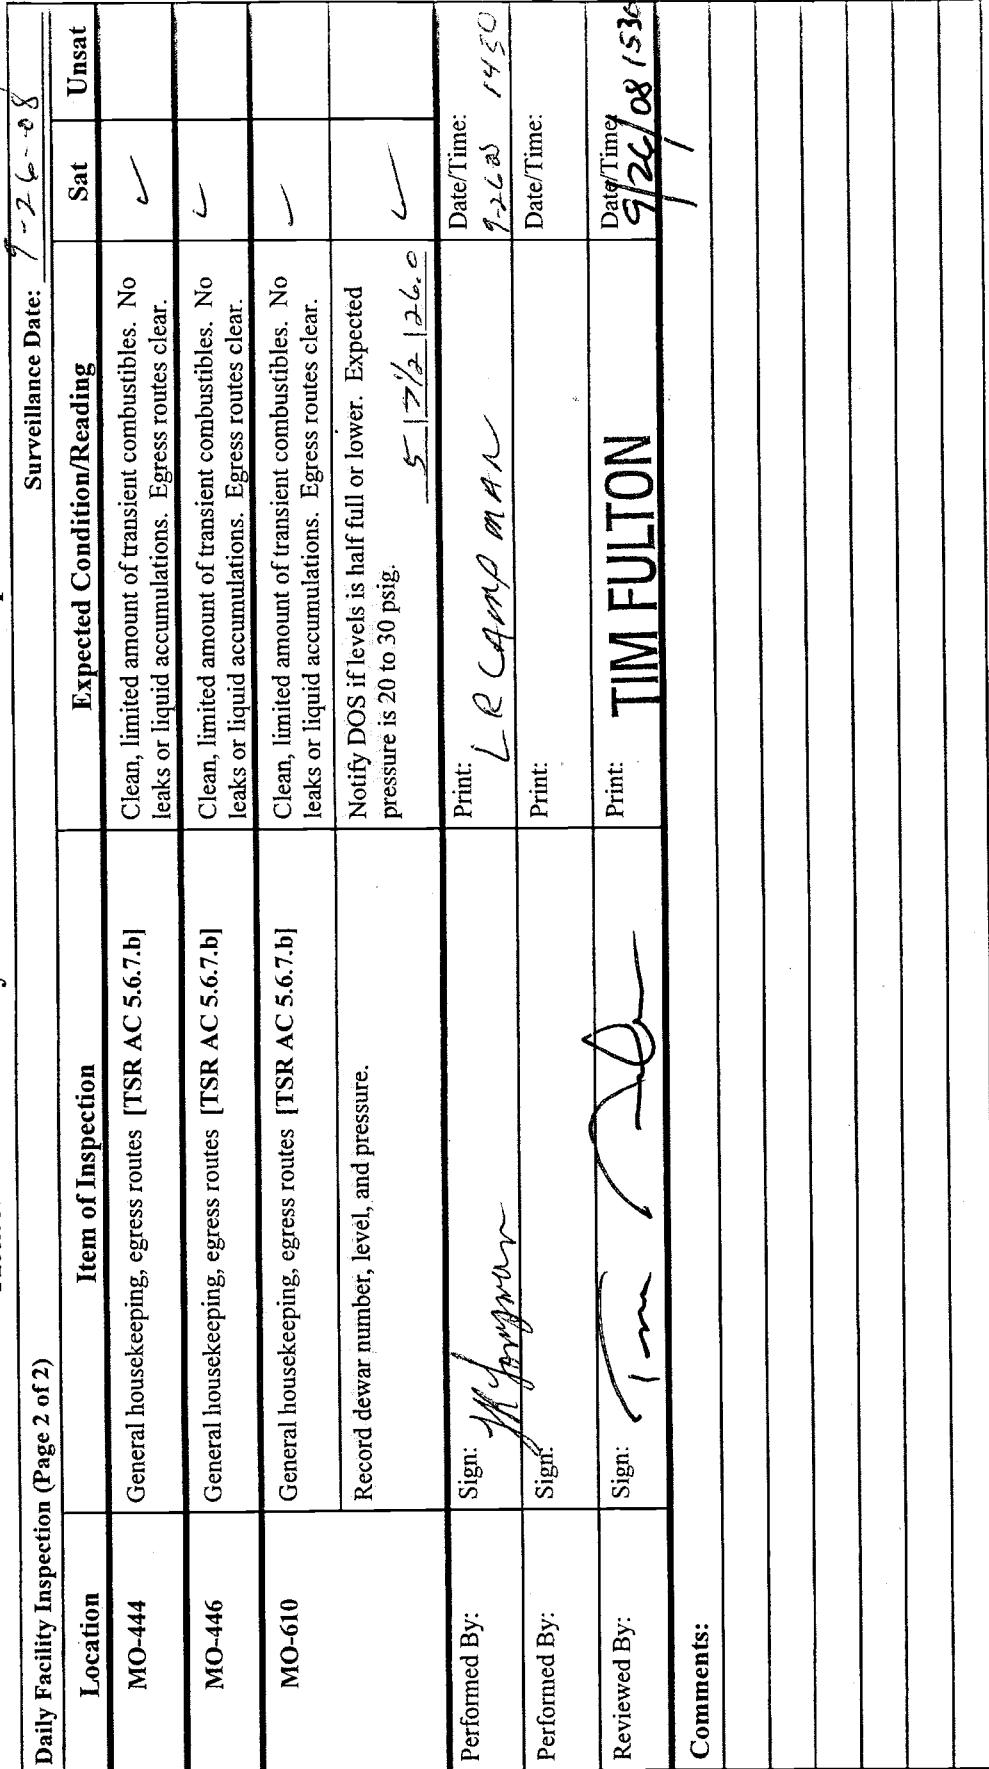 Daily Facility Inspection (Page 2 of 2)
Surveillance Date: 9-26-08
Location
Item of Inspection
Expected Condition/Reading
Sat
Unsat
MO-444
General housekeeping, egress routes [TSR AC 5.6.7.b]
Clean, limited amount of transient combustibles. No
leaks or liquid accumulations. Egress routes clear.
✓
MO-446
General housekeeping, egress routes [TSR AC 5.6.7.b]
Clean, limited amount of transient combustibles. No
leaks or liquid accumulations. Egress routes clear.
✓
MO-610
General housekeeping, egress routes [TSR AC 5.6.7.b]
Clean, limited amount of transient combustibles. No
leaks or liquid accumulations. Egress routes clear.
✓
Record dewar number, level, and pressure.
Notify DOS if levels is half full or lower. Expected
pressure is 20 to 30 psig.
5 | 7 1/2 | 26.0
✓
Performed By:
Sign:
Print: L R CAMPMAN
Date/Time:
1450
Performed By:
Sign:
Print:
Date/Time:
Reviewed By:
Sign: Tim
Print: TIM FULTON
Date/Time:
9/26/08 1530
Comments: